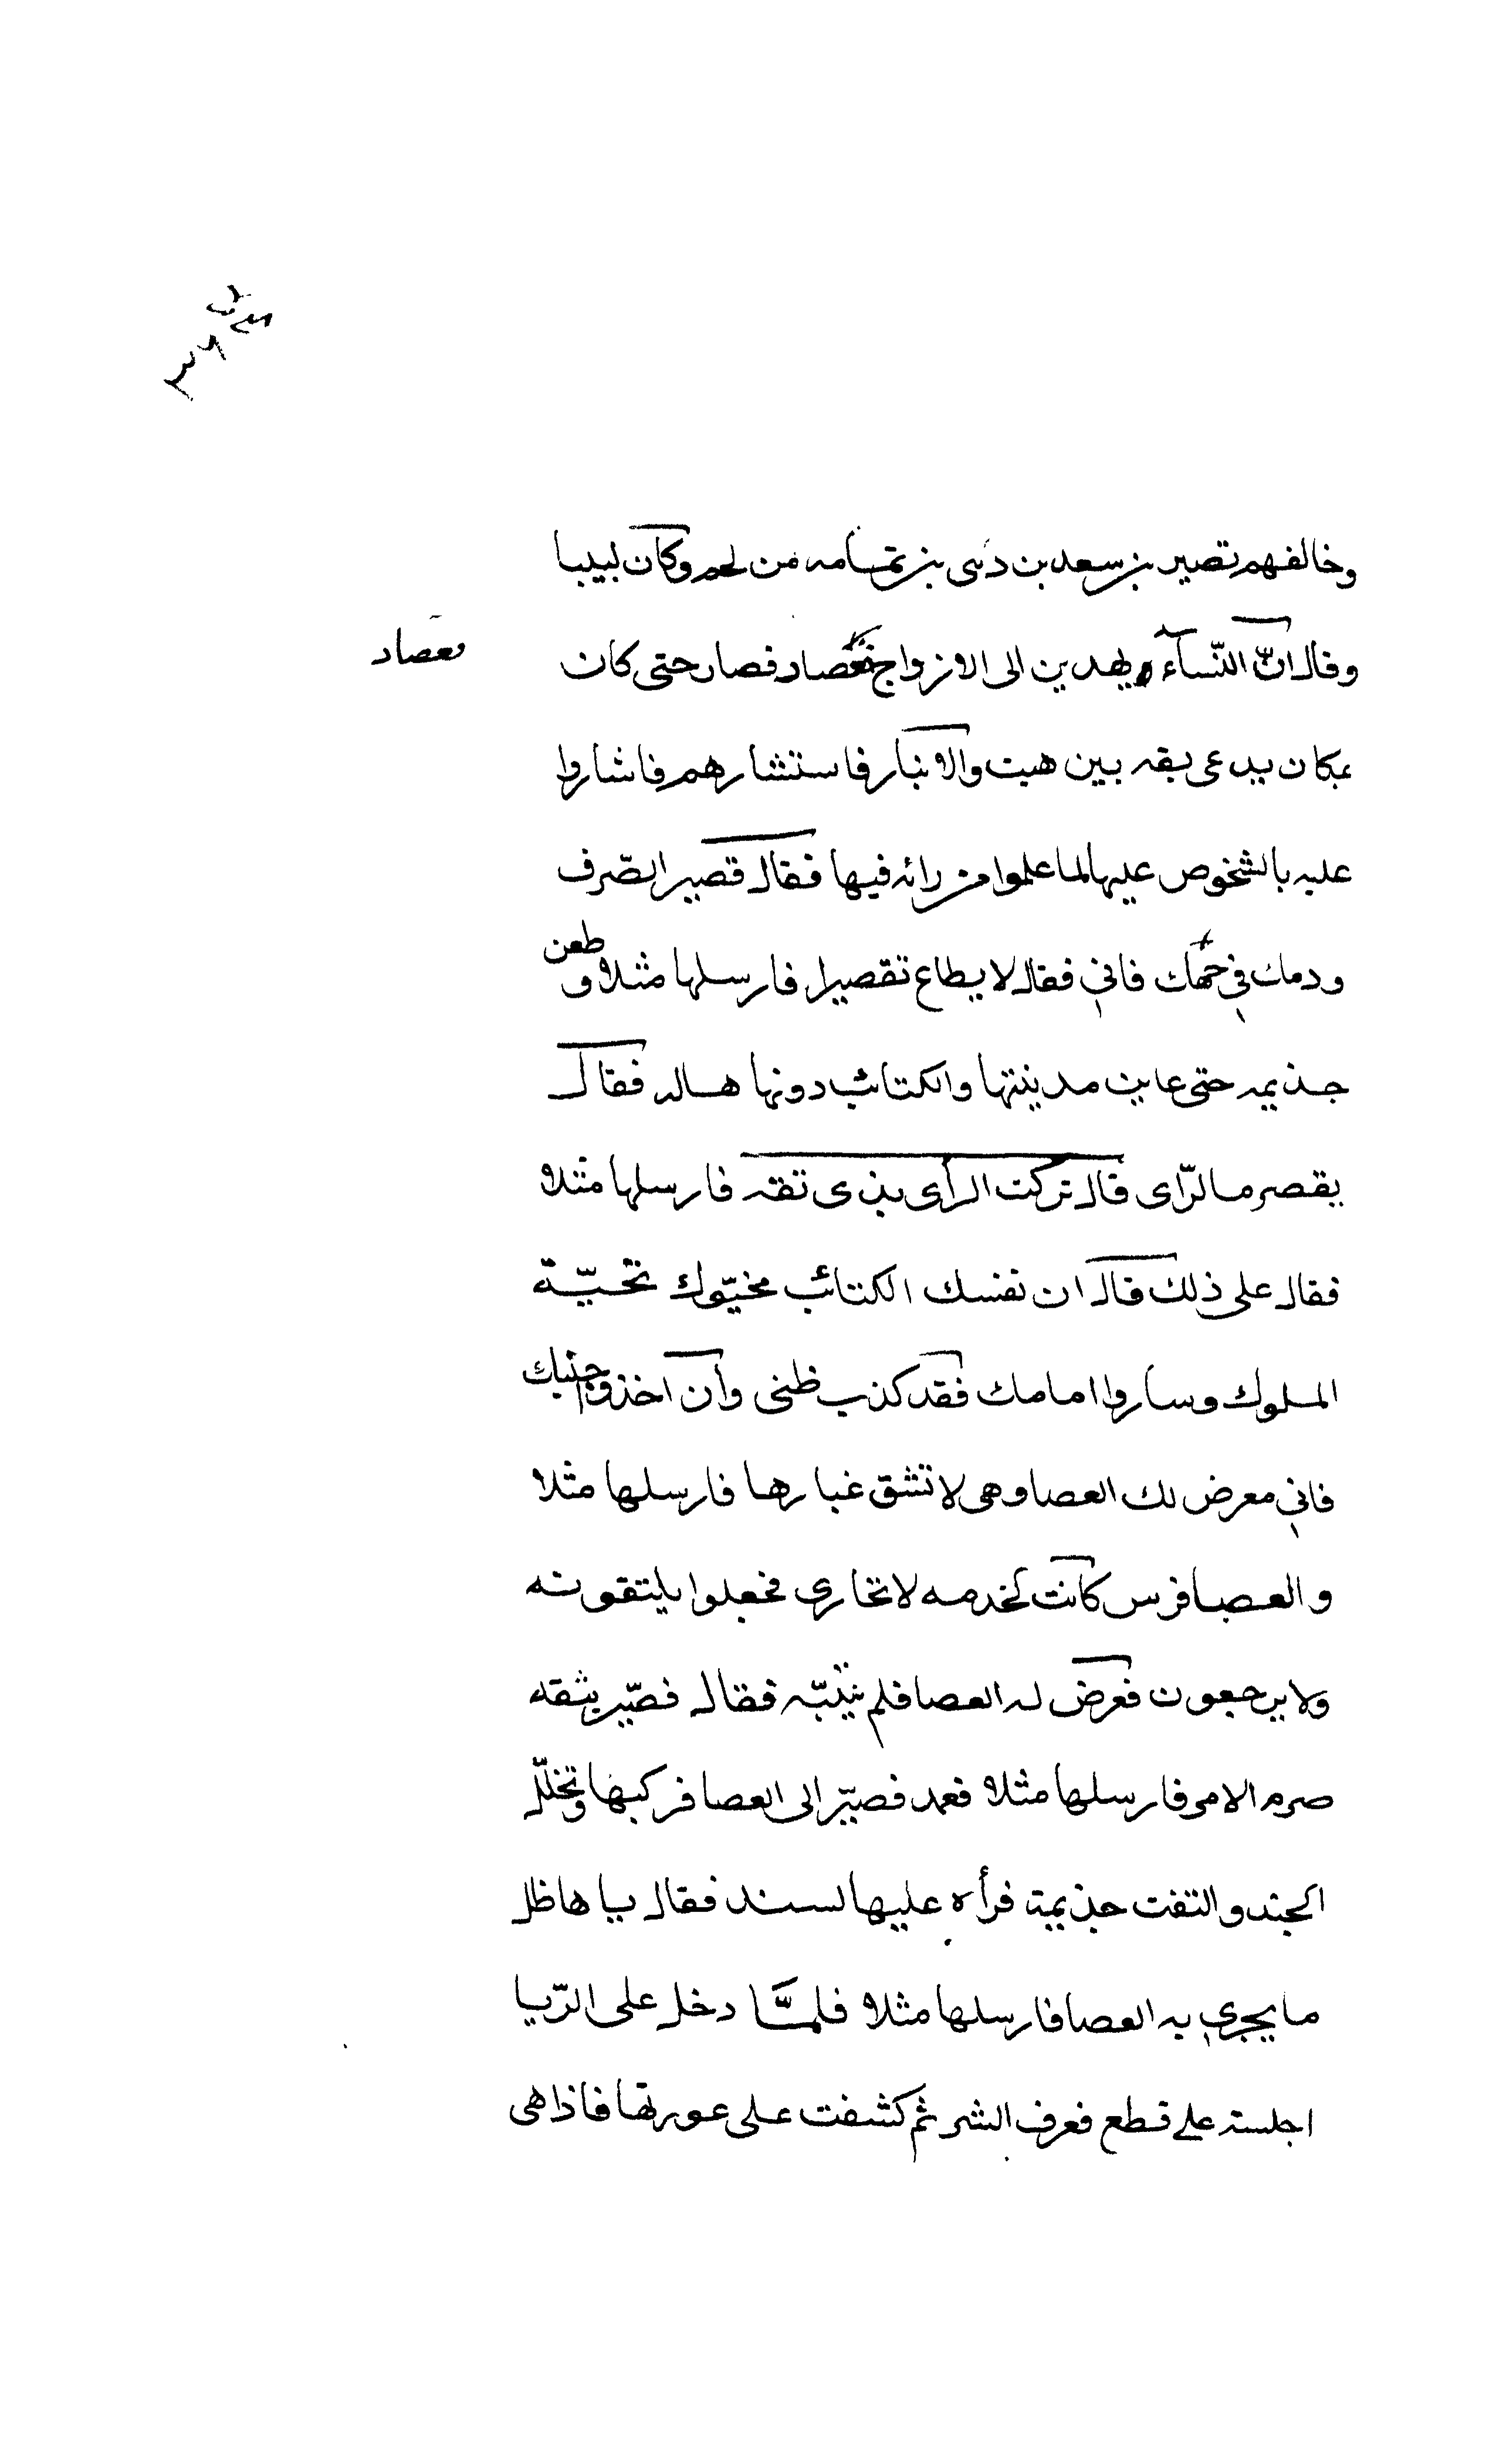 وخالفهم تصير بن سعد بن دنى بن تمامه من لحم وكان لبيبا
وقال انّ النّسآء يهدين الى الازواج فعصاد فصار حتى كان
معصاد
بمكان يدعى بقه بين هيت والانبار فاستشارهم فاشاروا
عليه بالشخوص عليها لما علموا من رائه فيها فقال قصير انصّرف
ودمك في فاني فقال لا يطاع تقصير فارسلها مثلا وطعن
جذيمه حتى عاين مدينتها والكتائب دونها هاله فقال
يقصر ما لرّاى قال تركت الرأى بذى تقه فارسلها مثلا
فقال على ذلك قال ان نفسك الكتائب مخيّوك تحيّة
الملوك وساروا امامك فقد كذب ظنى وأن اخذو جنباك
فاني معرض لك العصا وهى لا تشق غبارها فارسلها مثلا
والعصا فرس كانت لا تجارى فجعلوا يلتقونه
ولا يرجعون فعرض له العصا فلم فقال فصيّر يثقه
صرم الامر فارسلها مثلا فعمد فصيّر الى العصا فركبها وتخلّل
الجند والتفت جذيمة فرأه عليها لسند فقال يا هاظل
ما يجري به العصا فارسلها مثلا فلمّا دخل على الرّبا
اجلسته على قطع فعرف الشر ثم كشفت على عورتها فاذا هى